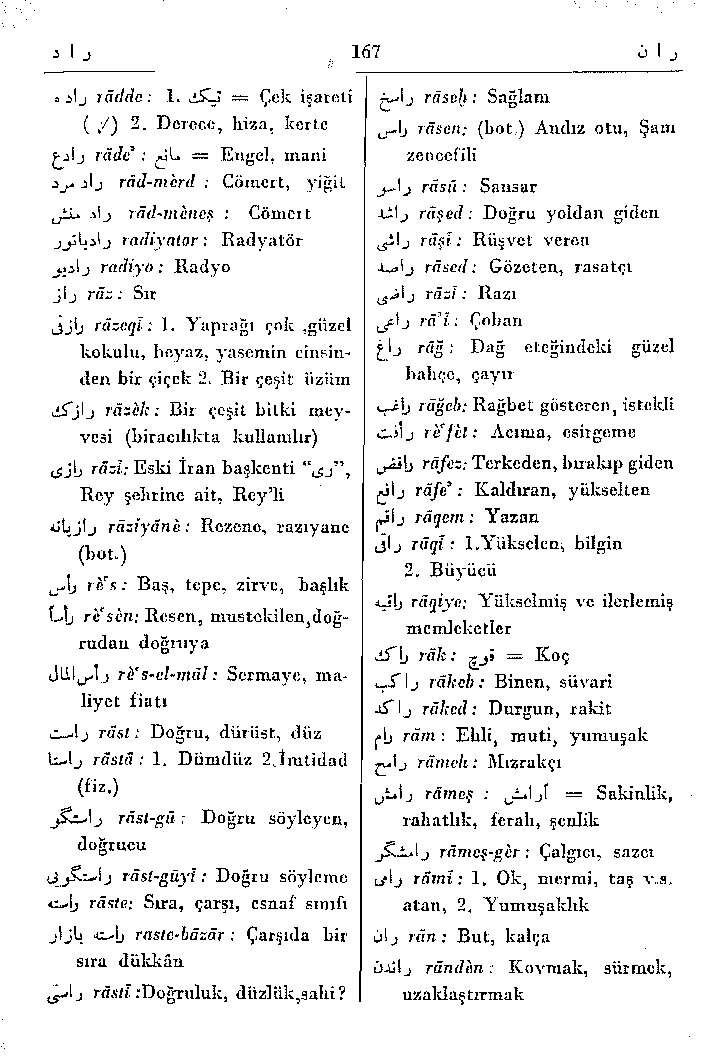 راد
167
ران
راده rādde: 1. تیک = Çek işareti
(√) 2. Derece, hiza, kerte
رادع râde': مانع = Engel, mani
راد مرد râd-mèrd : Cömert, yiğit
راد منش râd-mèneş : Cömert
رادیاتور radiyator: Radyatör
رادیو radiyo: Radyo
راز râz: Sır
رازقی râzeqî: 1. Yaprağı çok ,güzel
kokulu, beyaz, yasemin cinsin-
den bir çiçek 2. Bir çeşit üzüm
رازک râzèk: Bir çeşit bitki mey-
vesi (biracılıkta kullanılır)
رازی râzî: Eski İran başkenti “ری”,
Rey şehrine ait, Rey’li
رازیانه râziyânè: Rezene, razıyane
(bot.)
رأس rè's: Baş, tepe, zirve, başlık
رأساً rè'sèn: Resen, mustekilen,doğ-
rudan doğruya
رأس‌المال rè's-el-mâl: Sermaye, ma-
liyet fiatı
راست râst: Doğru, dürüst, düz
راستا râstâ: 1. Dümdüz 2.İmtidad
(fiz.)
راستگو râst-gû: Doğru söyleyen,
doğrucu
راستگویی râst-gûyî: Doğru söyleme
راسته râste: Sıra, çarşı, esnaf sınıfı
راسته بازار raste-bâzâr: Çarşıda bir
sıra dükkân
راستی râstî:Doğruluk, düzlük,sahi?
راسخ râseḫ: Sağlam
راسن râsen: (bot.) Andız otu, Şam
zencefili
راسو râsû: Sansar
راشد râşed: Doğru yoldan giden
راشی râşî: Rüşvet veren
راصد râsed: Gözeten, rasatçı
راضی râzî: Razı
راعی râ'î: Çoban
راغ râğ: Dağ eteğindeki güzel
bahçe, çayır
راغب râğeb: Rağbet gösteren, istekli
رأفت rè'fèt: Acıma, esirgeme
رافض râfez: Terkeden, bırakıp giden
رافع râfe': Kaldıran, yükselten
راقم râqem: Yazan
راقی râqî: 1.Yükselen, bilgin
2. Büyücü
راقیه râqiye: Yükselmiş ve ilerlemiş
memleketler
راک râk: قوچ = Koç
راکب râkeb: Binen, süvari
راکد râked: Durgun, rakit
رام râm: Ehli, muti, yumuşak
رامح râmeh: Mızrakçı
رامش râmeş : آرامش = Sakinlik,
rahatlık, ferah, şenlik
رامشگر râmeş-gèr: Çalgıcı, sazcı
رامی râmî: 1. Ok, mermi, taş v.s.
atan, 2. Yumuşaklık
ران rân: But, kalça
راندن rândèn: Kovmak, sürmek,
uzaklaştırmak